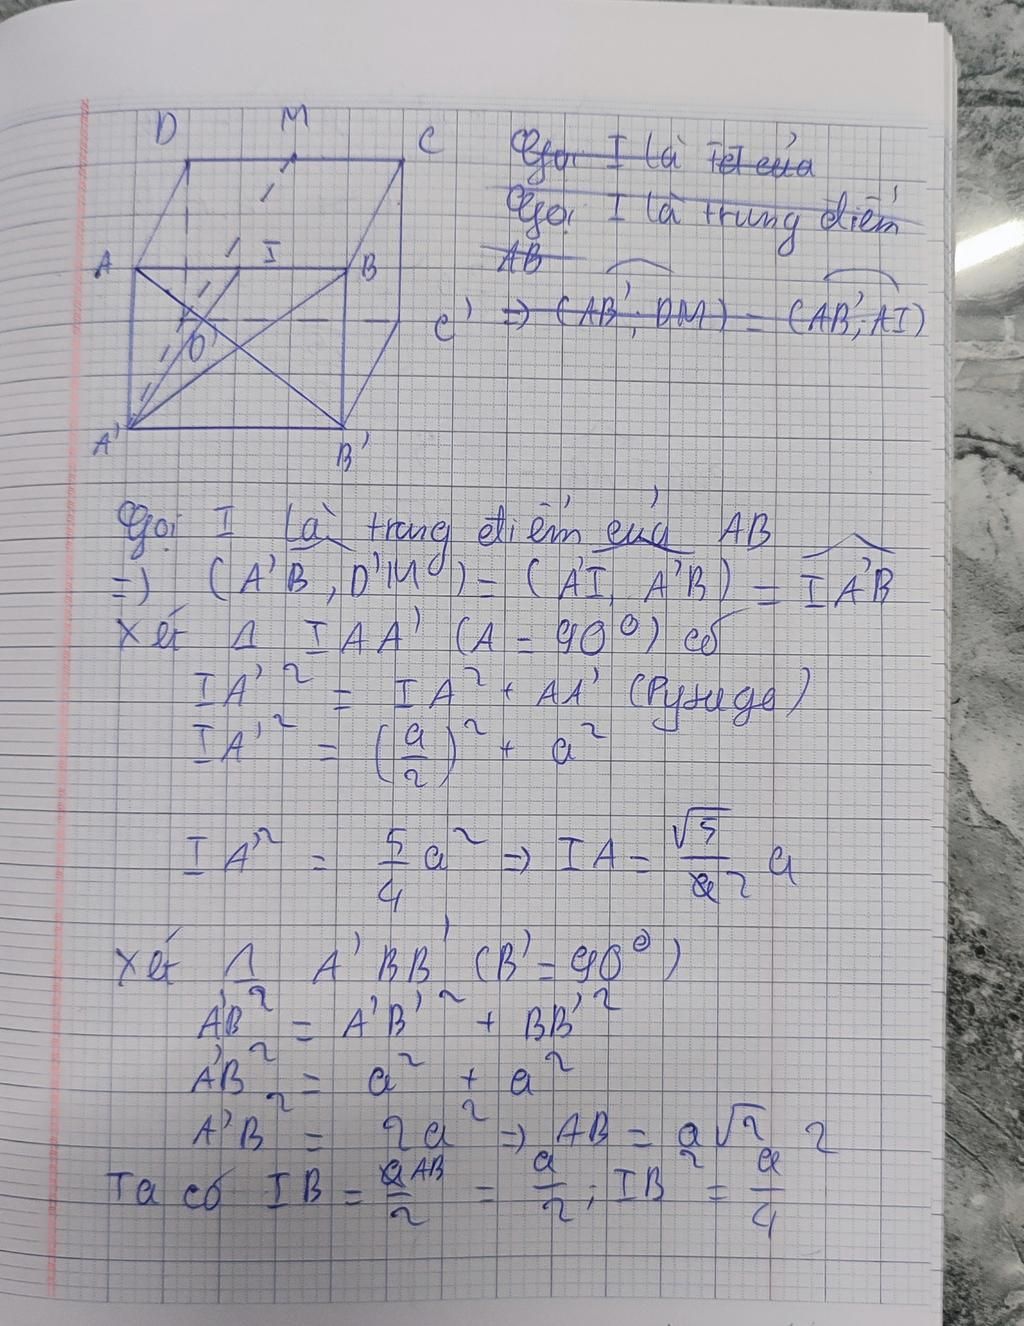 D M C
Gọi I là TĐ của
Gọi I là trung điểm
A I B
AB
=> (AB'; DM) = (AB'; AI)
C'
O
A' B'
Gọi I là trung điểm của AB
=> (A'B, D'M) = (A'I, A'B) = IA'B
Xét Δ IAA' (A = 90°) có
IA'² = IA² + AA' (Pytago)
IA'² = (a/2)² + a²
IA'² = 5/4 a² => IA = √5/2 a
Xét Δ A'BB' (B' = 90°)
A'B² = A'B'² + BB'²
A'B² = a² + a²
A'B² = 2a² => AB = a√2
Ta có IB = AB/2 = a/2 ; IB² = a²/4